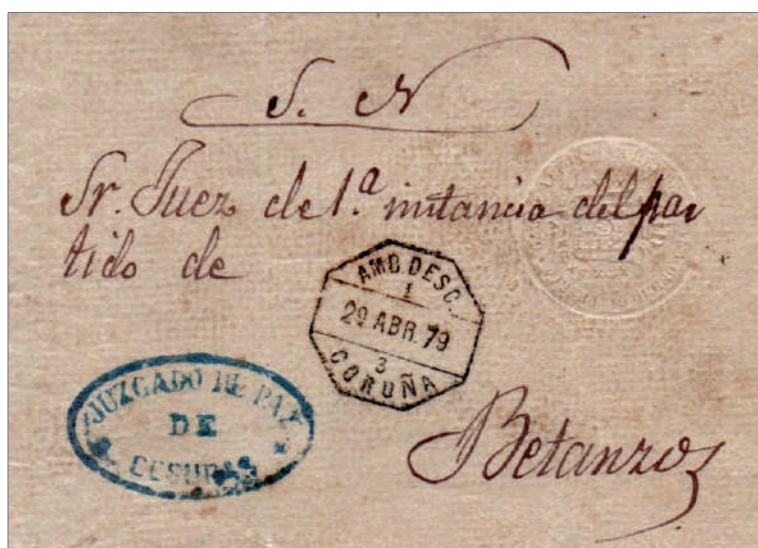 S. N
Sr. Juez de 1.ª instancia del par
tido de
AMB. DESC.
1
29 ABR. 79
3
CORUÑA
JUZGADO DE PAZ
DE
CESURAS
Betanzos